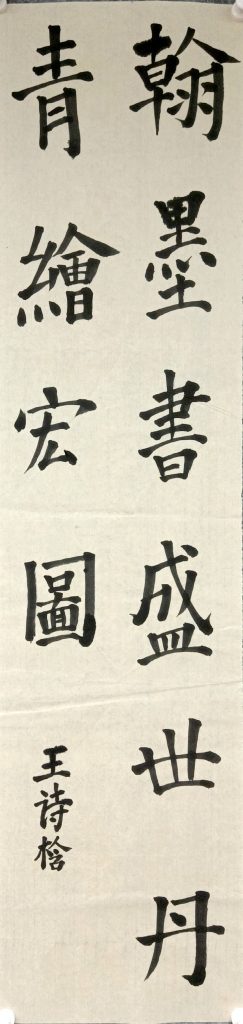 翰墨書盛世丹
青繪宏圖
王诗桧